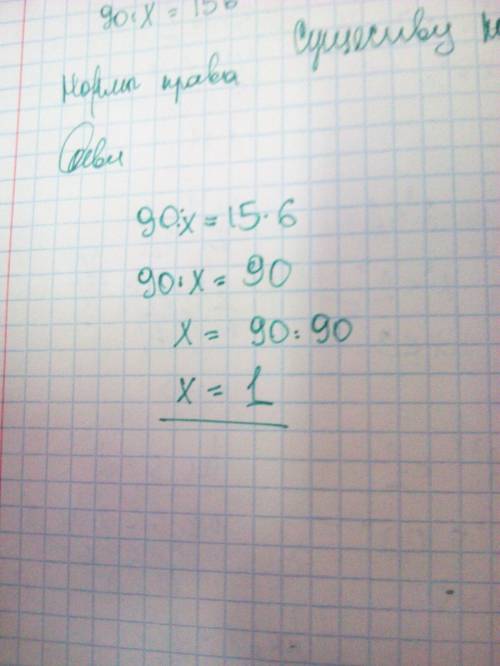 90:x = 156
Существу
Нормы права
90:x = 15·6
90:x = 90
x = 90:90
x = 1